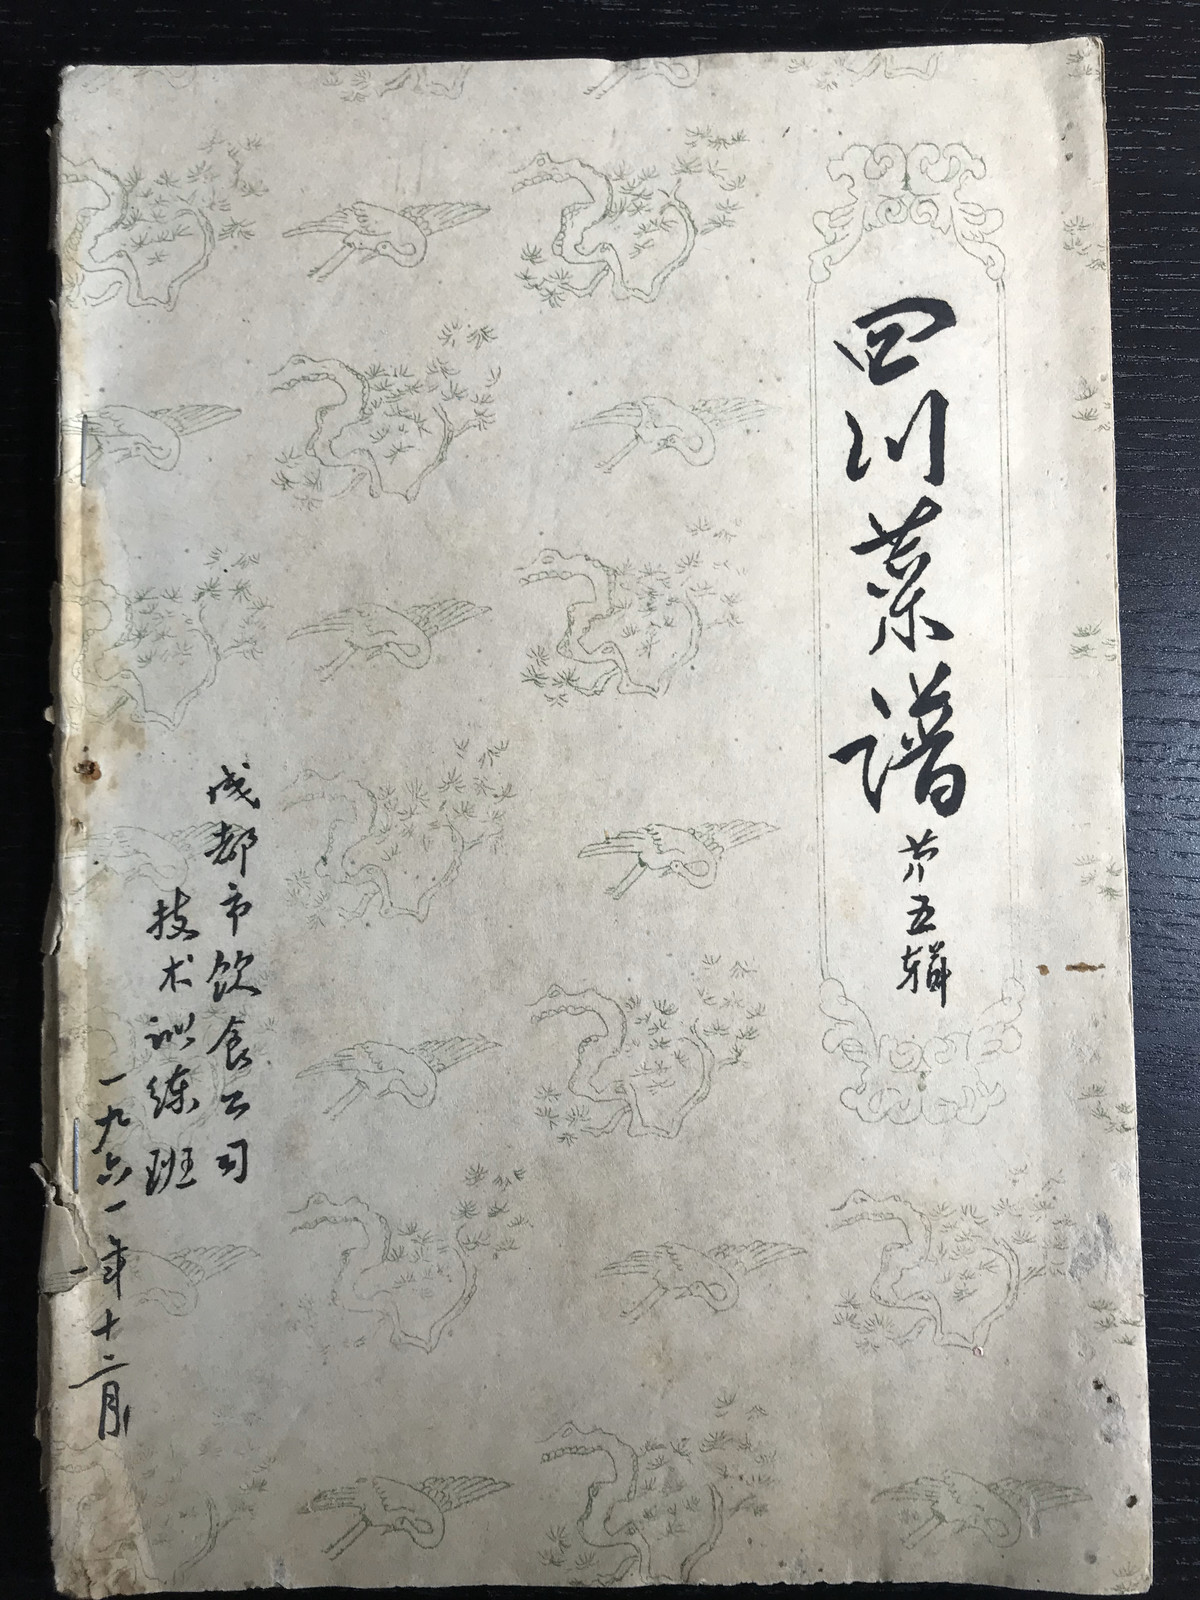 四川菜谱 第五辑
成都市饮食公司
技术训练班
一九六一年十二月